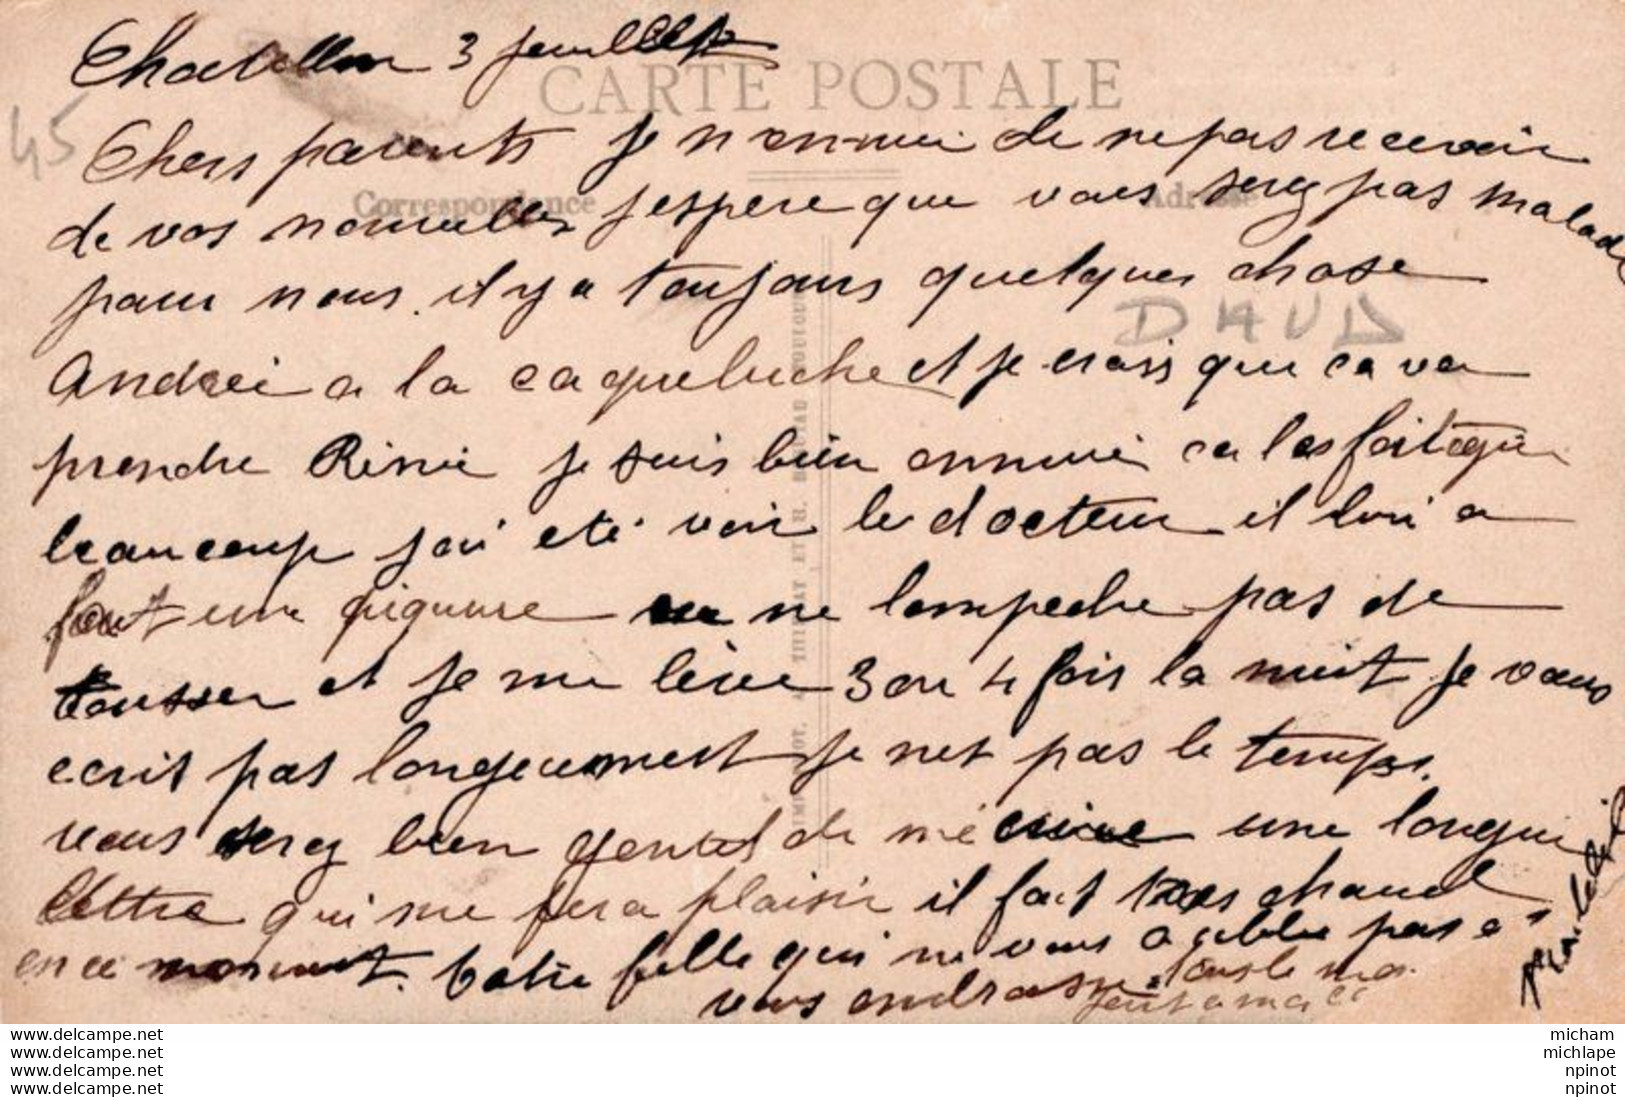 Chatillon 3 Juillet
CARTE POSTALE
45
Chers parents Je n ennui de ne pas recevoir
Correspondance
Adresse
de vos nouvelles j espere que vous serez pas malade
pour nous il y a toujours quelques chose
DAUD
Andrei a la caqueluche et je crois que ca va
prendre Rénié je suis bien ennuié ca les fait
beaucoup j ai eté voir le docteur il lui a
fait une piqure ne lempeche pas de
tousser et je me lève 3 ou 4 fois la nuit Je vous
ecrit pas longeument je net pas le temps.
vous serez bien gentil de mécrire une longue
lettre qui me fera plaisir il fait tres chaud
en ce moment. Votre fille qui ne vous oublie pas
vous
micham
www.delcampe.net michlape
www.delcampe.net npinot
www.delcampe.net npinot
www.delcampe.net